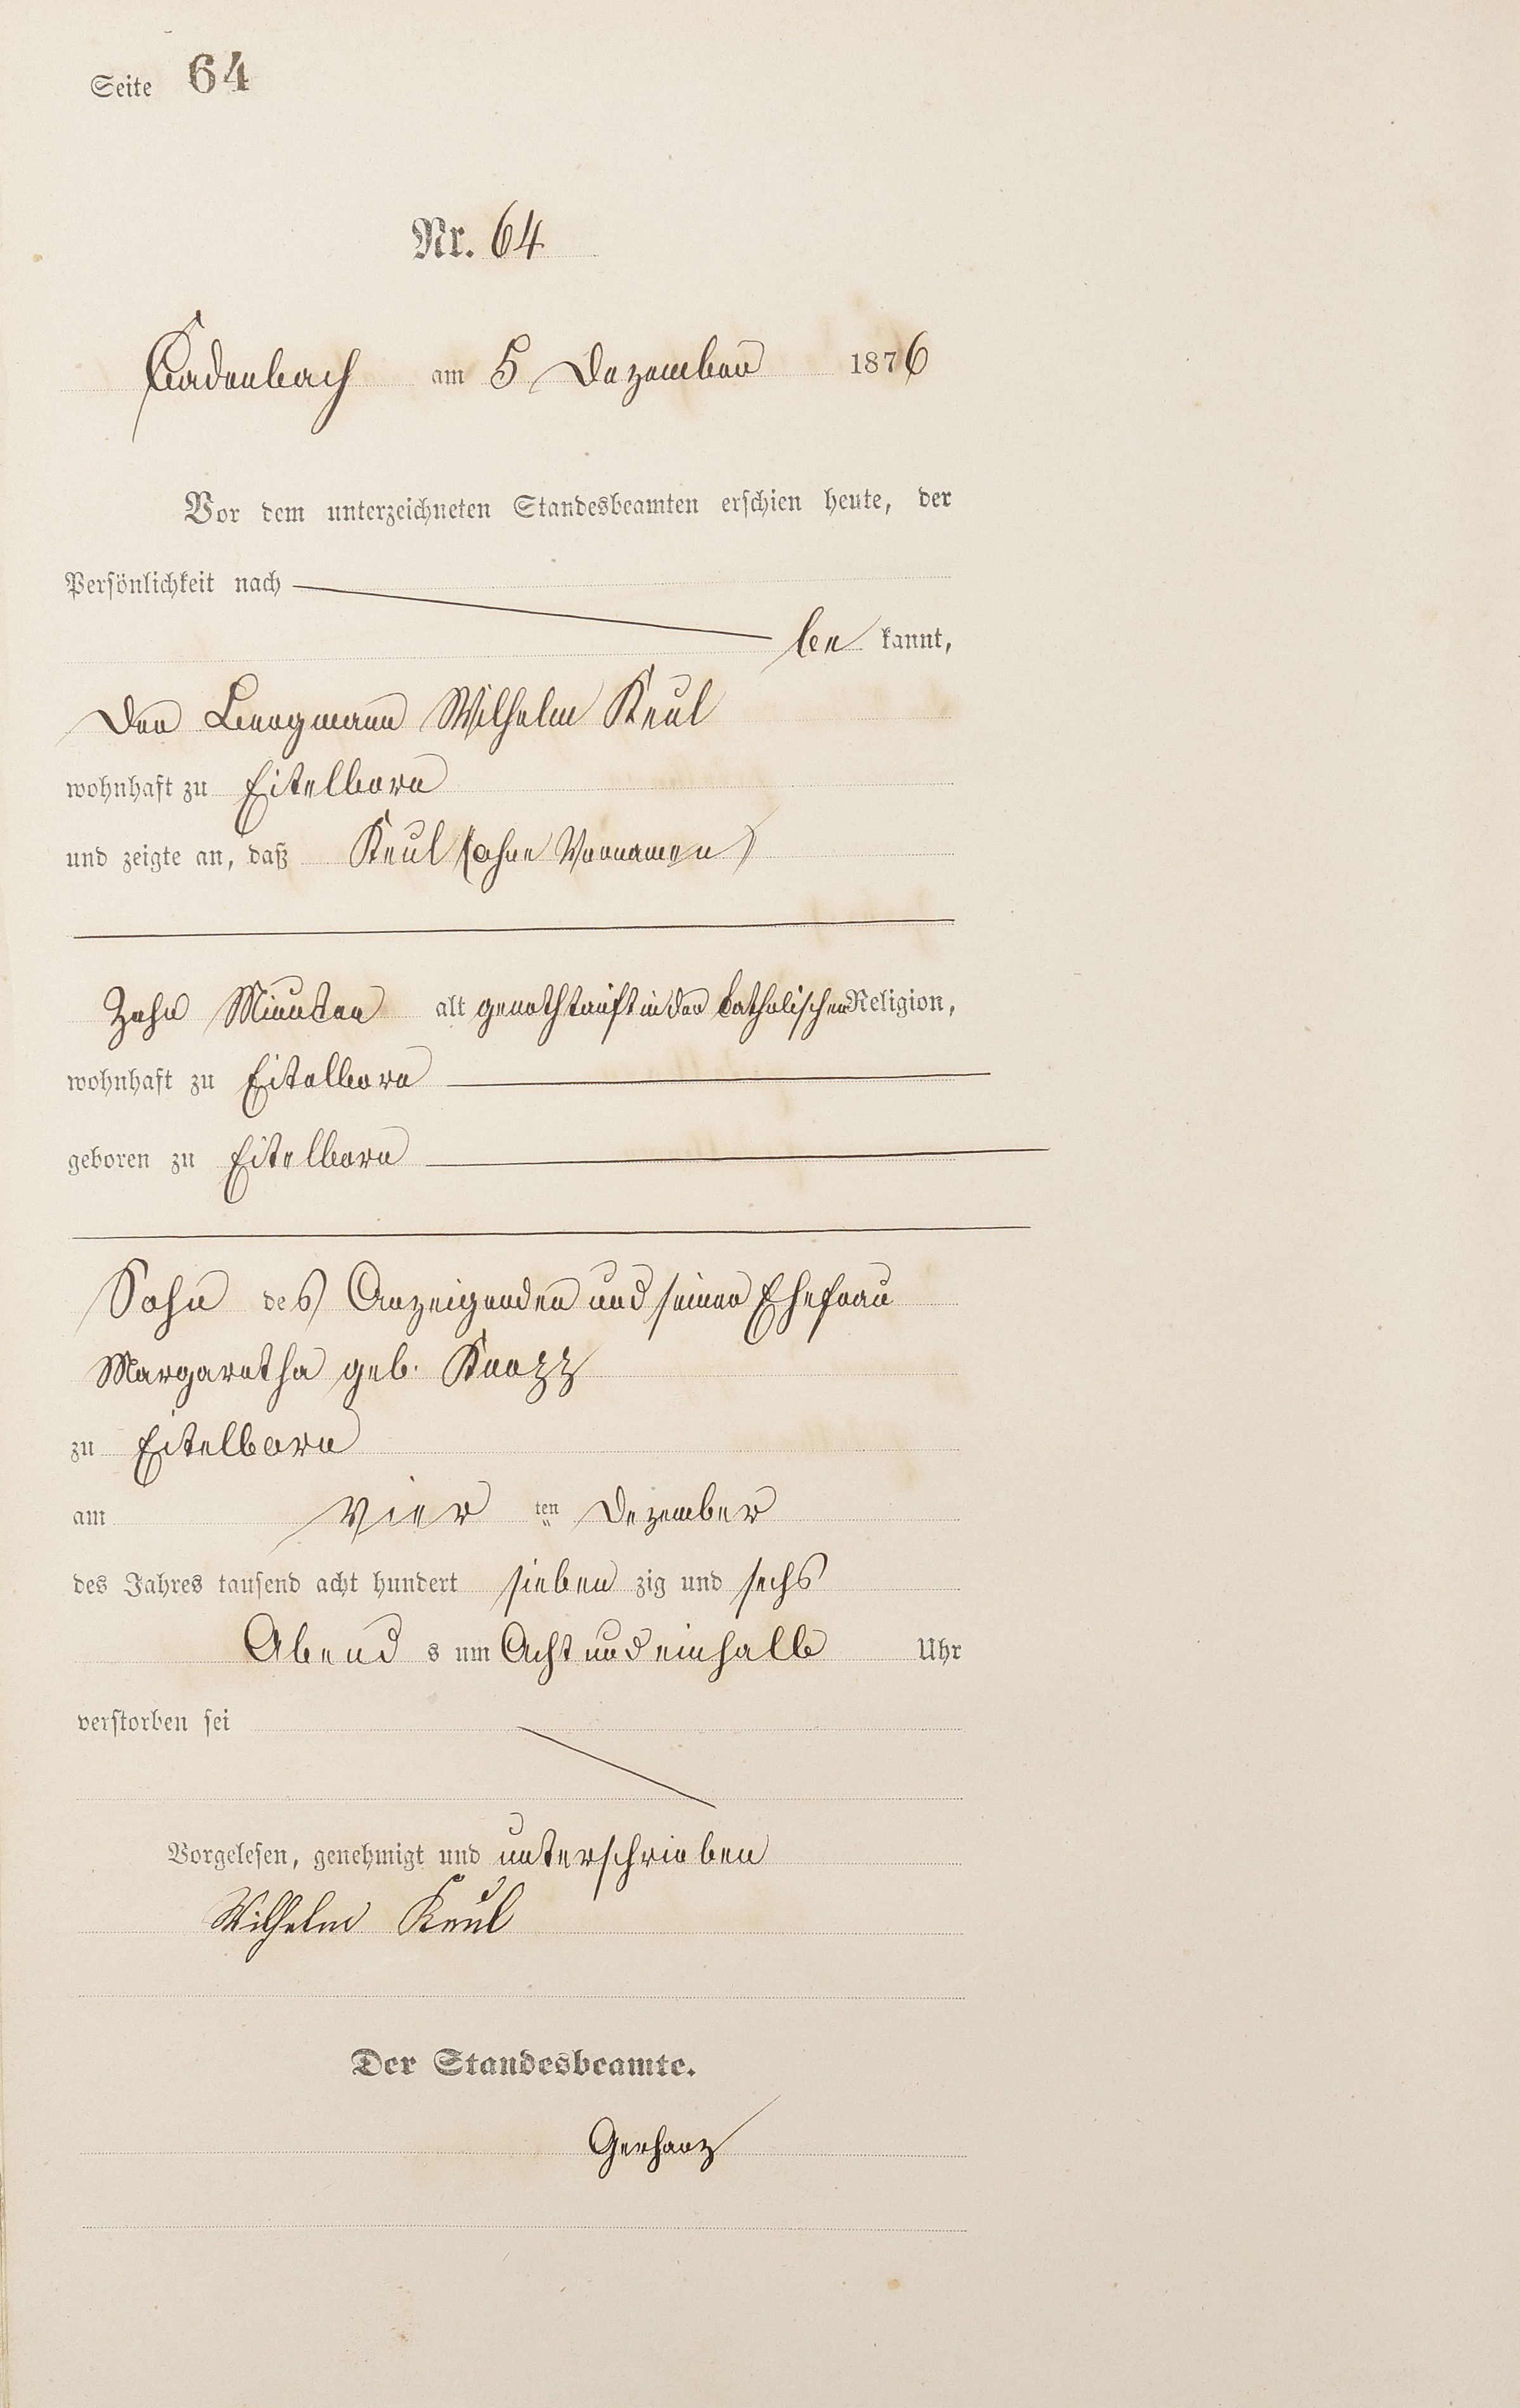 Seite 64
Nr. 64
Cadenbach am 5 Dezember 1876
Vor dem unterzeichneten Standesbeamten erschien heute, der
Persönlichkeit nach
be kannt,
Der Bergmann Wilhelm Keul
wohnhaft zu Eitelborn
und zeigte an, daß Keul (ohne Vornamen)
Zehn Minuten alt genothtauft in der catholischen Religion,
wohnhaft zu Eitelborn
geboren zu Eitelborn
Sohn des Anzeigenden und seiner Ehefrau
Margaretha geb.
zu Eitelborn
am Vier ten Dezember
des Jahres tausend acht hundert sieben zig und sechs
Abend s um Acht und einhalb Uhr
verstorben sei
Vorgelesen, genehmigt und unterschrieben
Wilhelm Keul
Der Standesbeamte.
Gerharz